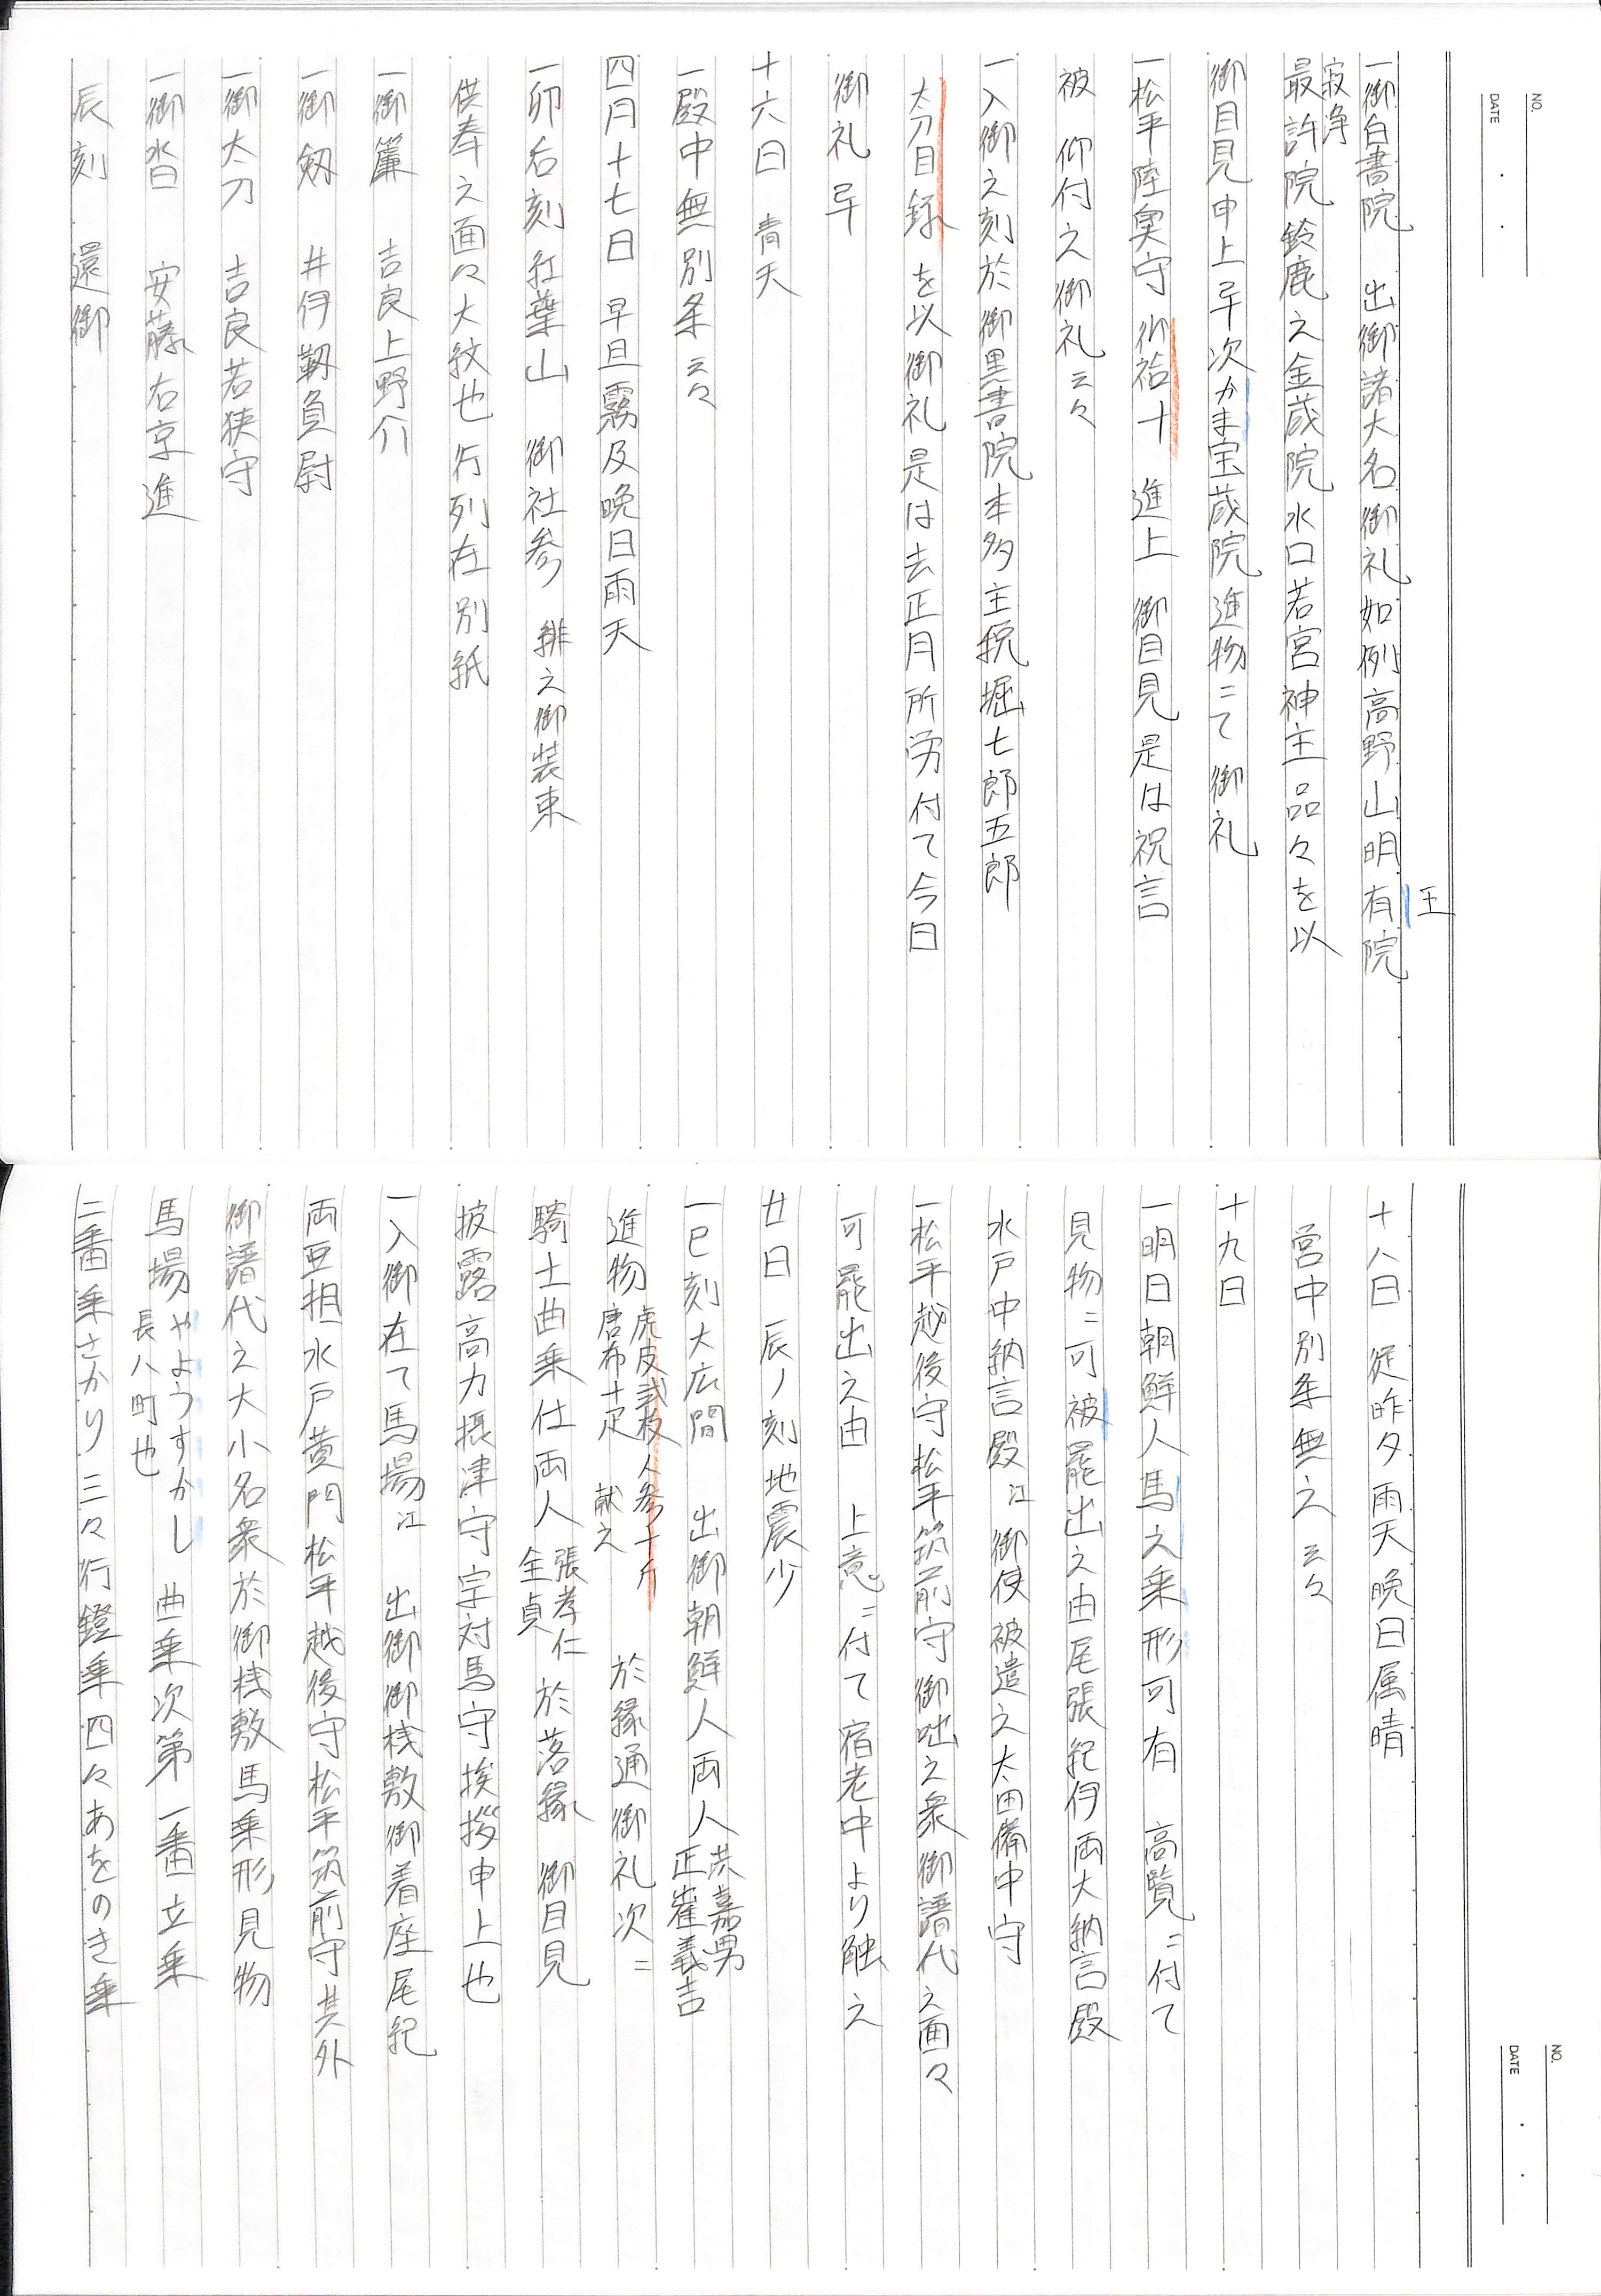 NO.
DATE
一御白書院 出御諸大名御礼如例高野山明有院
王
寂浄
最許院鈴鹿之金蔵院水口若宮神主品々を以
御目見申上畢次かま宝蔵院進物ニて 御礼
一松平陸奥守 御袷十 進上 御目見是は祝言
被 仰付之御礼云々
一入御之刻於御黒書院本多主税堀七郎五郎
太刀目録を以御礼是は去正月所労付て今日
御礼畢
十六日 青天
一殿中無別条云々
四月十七日 早旦霧及晩日雨天
一卯后刻紅葉山 御社参 緋之御装束
供奉之面々大紋也 行列在別紙
一御簾 吉良上野介
一御劔 井伊靱負尉
一御太刀 吉良若狭守
一御沓 安藤右京進
辰刻 還御
NO.
DATE
十八日 従昨夕雨天晩日属晴
宮中別条無之 云々
十九日
一明日朝鮮人馬之乗形可有 高覧ニ付て
見物ニ可被罷出之由尾張紀伊両大納言殿
水戸中納言殿江 御使被遣之太田備中守
一松平越後守松平筑前守御咄之衆御譜代之面々
可罷出之由 上意ニ付て宿老中より触之
廿日 辰ノ刻地震少
一巳刻大広間 出御朝鮮人両人 洪嘉男 正崔義吉
進物 虎皮弐枚人参十斤 唐布十疋 献之 於縁通御礼次ニ
騎士曲乗仕両人 張孝仁 全貞 於落縁 御目見
披露高力摂津守宗対馬守挨拶申上也
一入御在て馬場江 出御御桟敷御着座尾紀
両亜相水戸黄門松平越後守松平筑前守其外
御譜代之大小名衆於御桟敷馬乗形見物
馬場 やようすかし 長八町也 曲乗次第 一番立乗
二番乗さかり三々行鐙乗四々あをのき乗